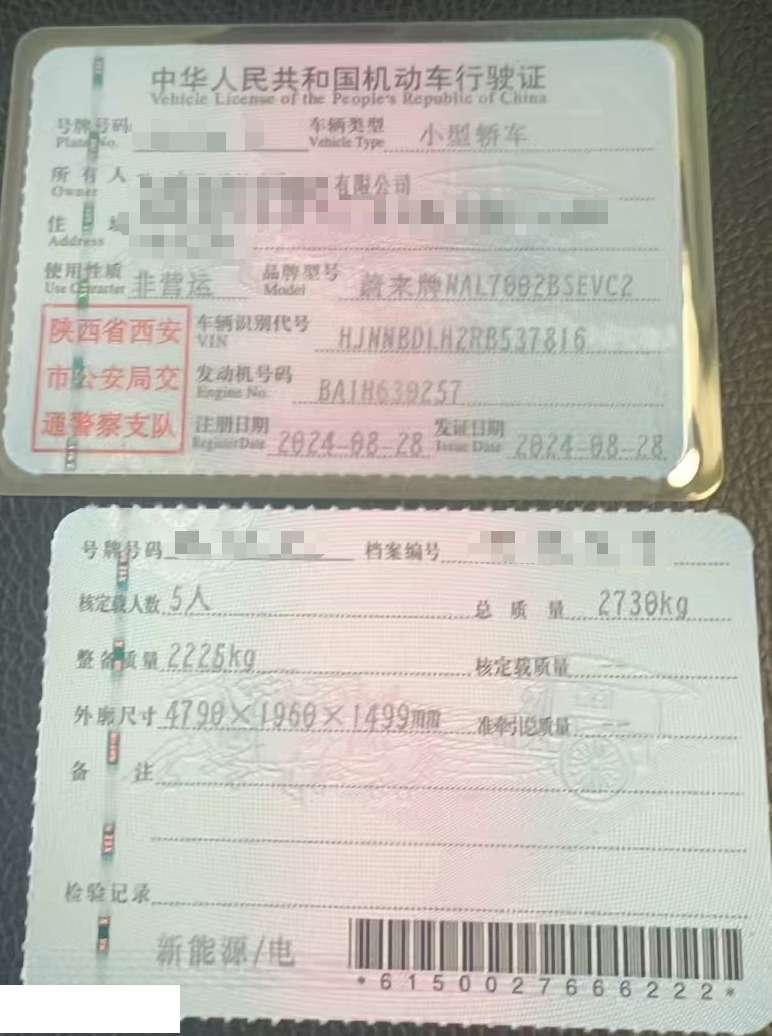 中华人民共和国机动车行驶证
Vehicle License of the People's Republic of China
号牌号码 Plate No. 车辆类型 Vehicle Type 小型轿车
所有人 Owner 有限公司
住 址 Address
使用性质 Use Character 非营运 品牌型号 Model 蔚来牌NAL7002BSEVC2
陕西省西安
市公安局交
通警察支队
车辆识别代号 VIN HJNNBDLH2RB537816
发动机号码 Engine No. BA1H630257
注册日期 Register Date 2024-08-28 发证日期 Issue Date 2024-08-28
号牌号码 档案编号
核定载人数 5人 总质量 2730kg
整备质量 2225kg 核定载质量 --
外廓尺寸 4790×1960×1499mm 准牵引总质量 --
备 注
检验记录
新能源/电
*6150027666222*